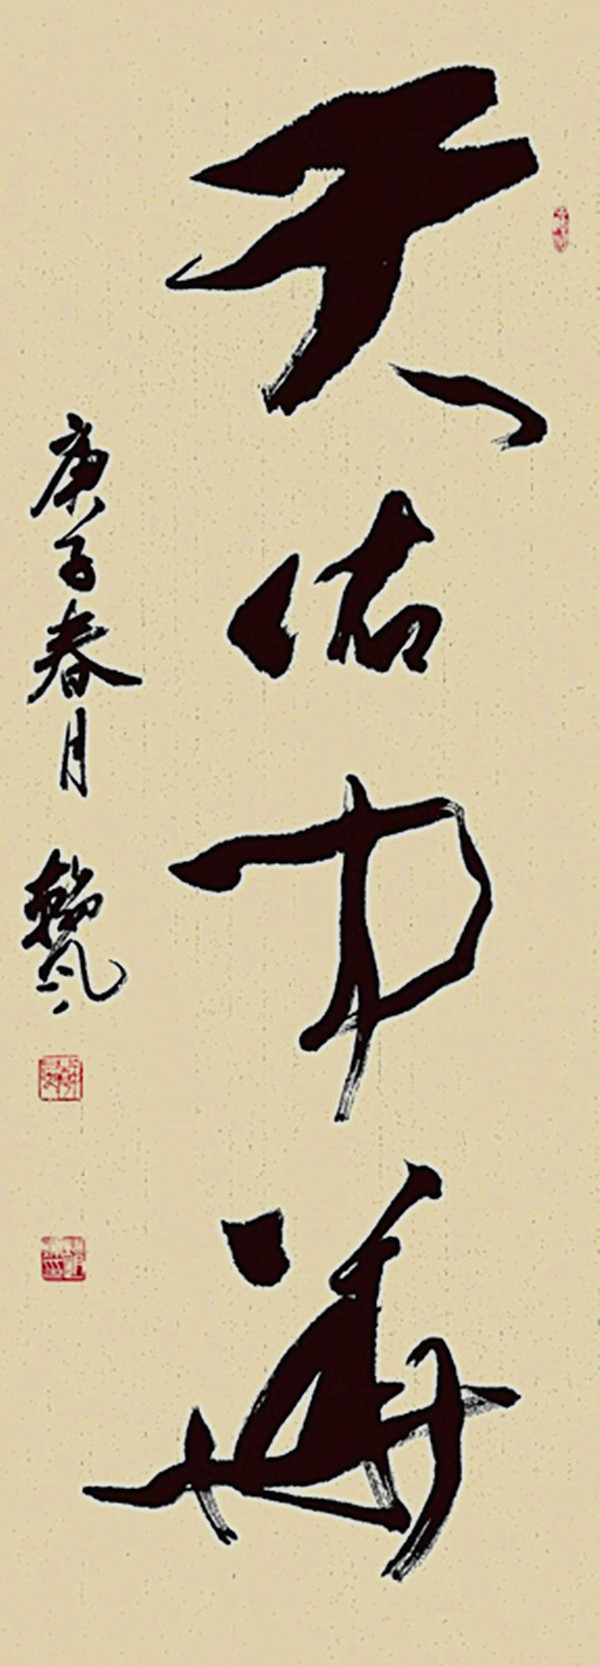 天佑中華
庚子春月